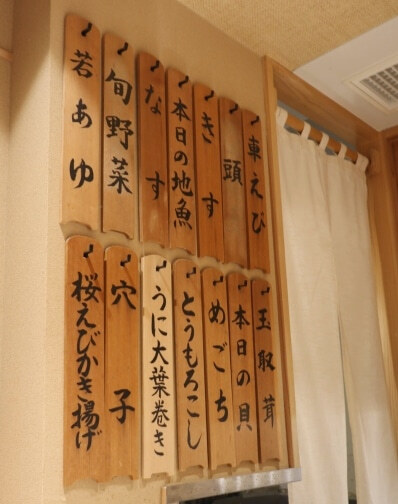 車えび
頭
きす
本日の地魚
なす
旬野菜
若あゆ
玉取茸
本日の貝
めごち
とうもろこし
うに大葉巻き
穴子
桜えびかき揚げ